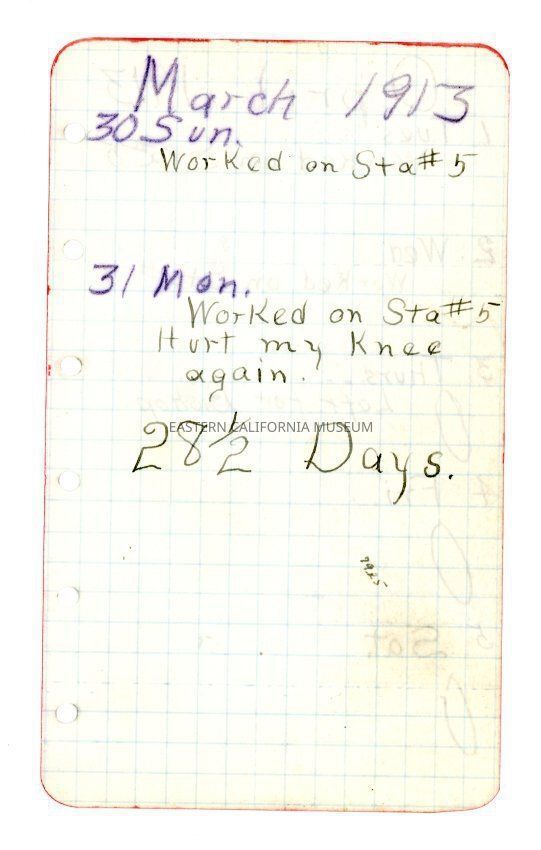 March 1913
30 Sun.
Worked on Sta#5
31 Mon.
Worked on Sta#5
Hurt my Knee
again.
EASTERN CALIFORNIA MUSEUM
28 1/2 Days.